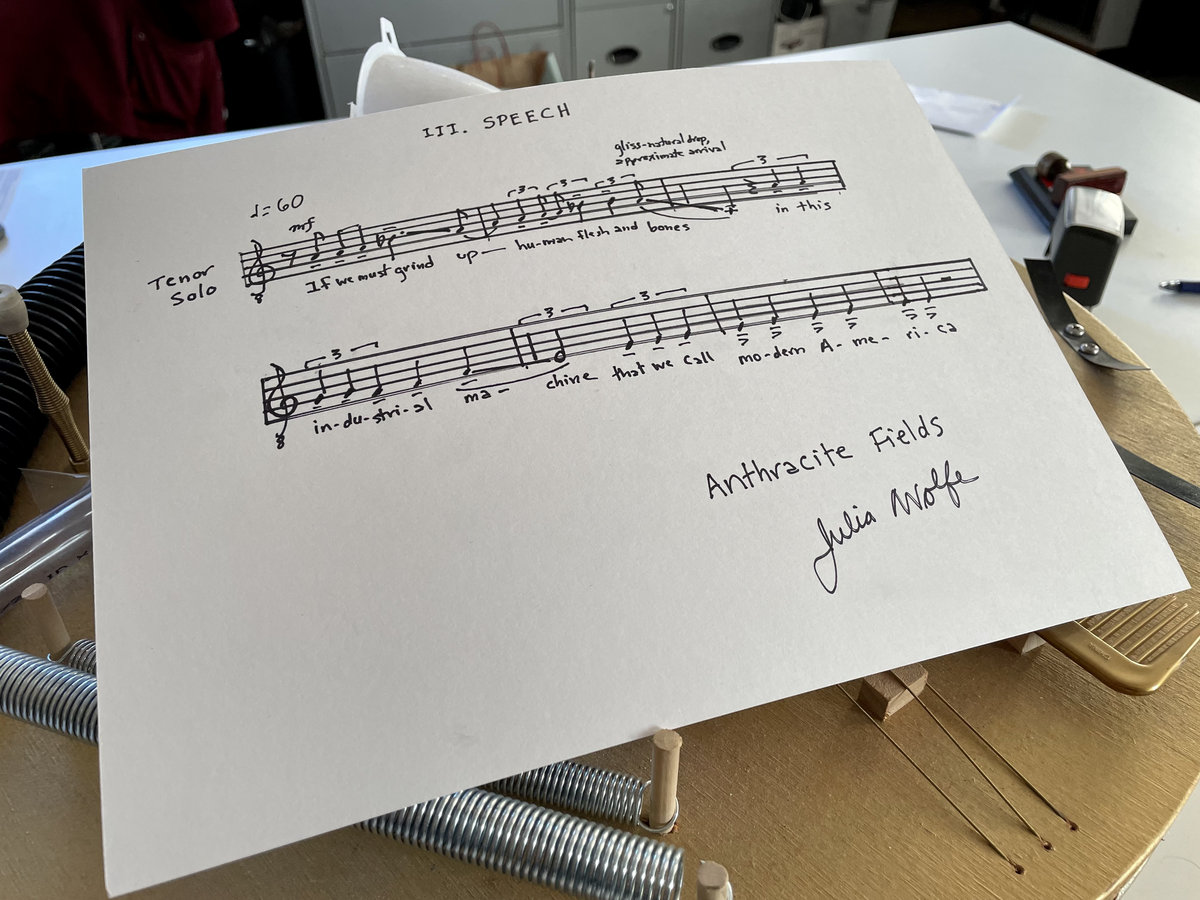 III. SPEECH
gliss-natural drop,
approximate arrival
♩=60
mf
3 3 3 3
Tenor
Solo
8
If we must grind up— hu-man flesh and bones in this
3 3 3
8
in-du-stri-al ma- chine that we call mo-dern A-me-ri-ca
Anthracite Fields
Julia Wolfe